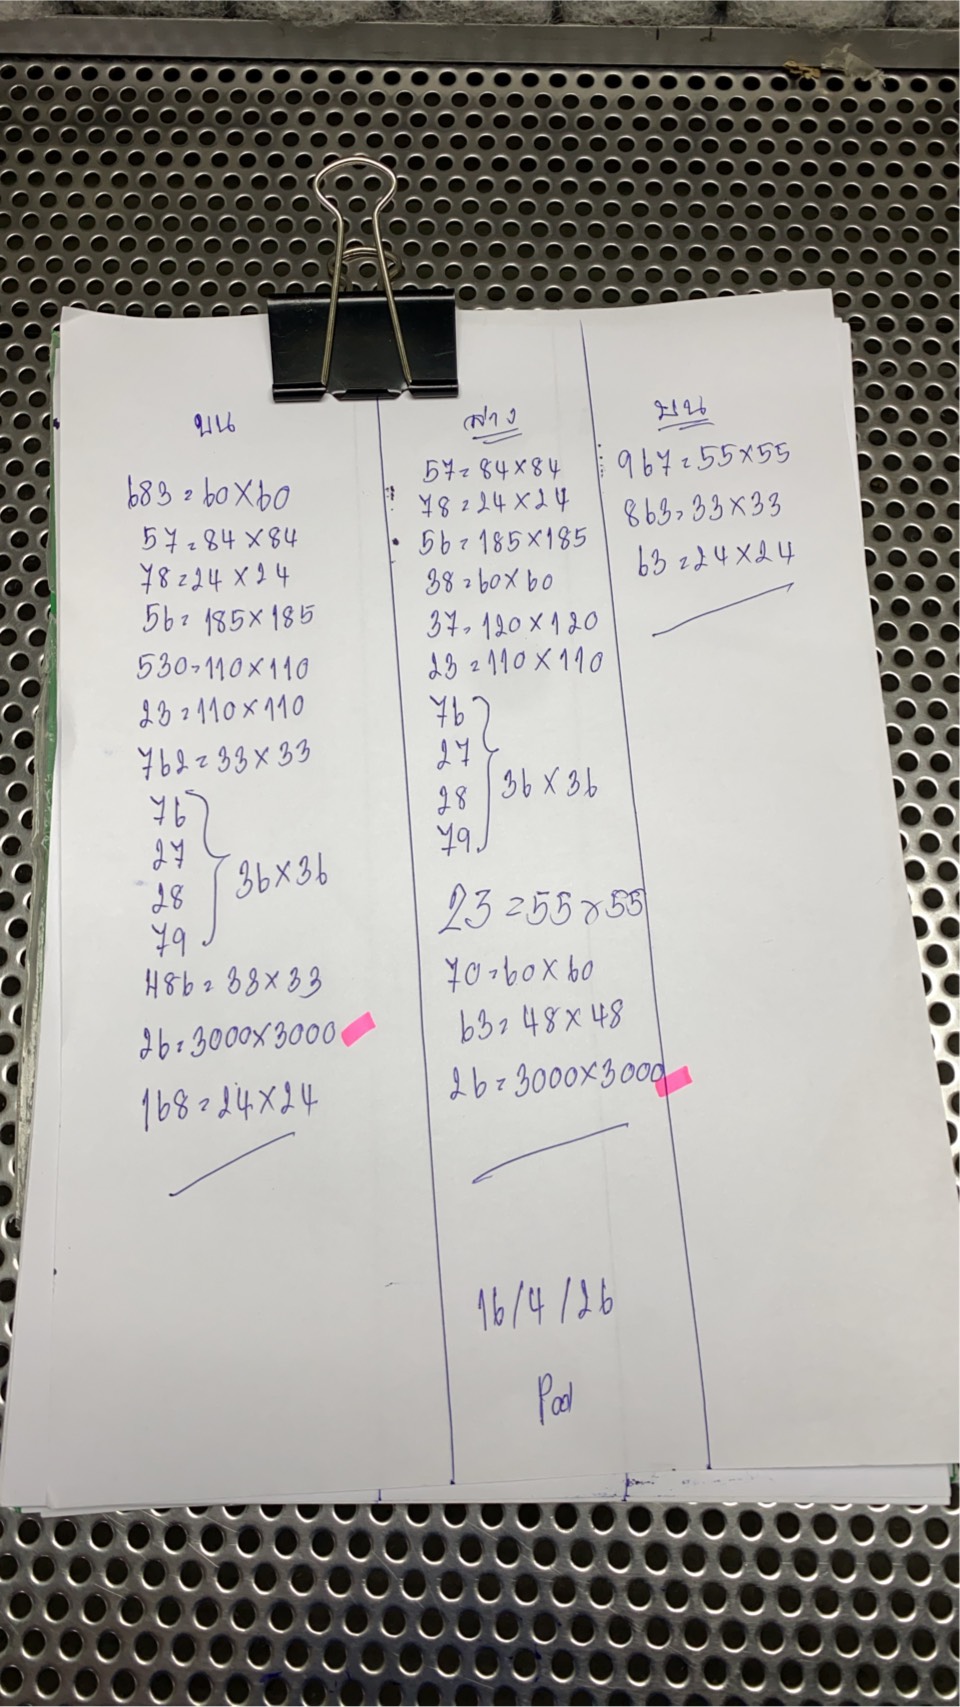 บน
683=60×60
57=84×84
78=24×24
56=185×185
530=110×110
23=110×110
762=33×33
76
27
28
79
} 36×36
486=33×33
26=3000×3000
168=24×24
ล่าง
57=84×84
78=24×24
56=185×185
38=60×60
37=120×120
23=110×110
76
27
28
79
} 36×36
23=55×55
70=60×60
63=48×48
26=3000×3000
บน
967=55×55
863=33×33
63=24×24
16/4/26